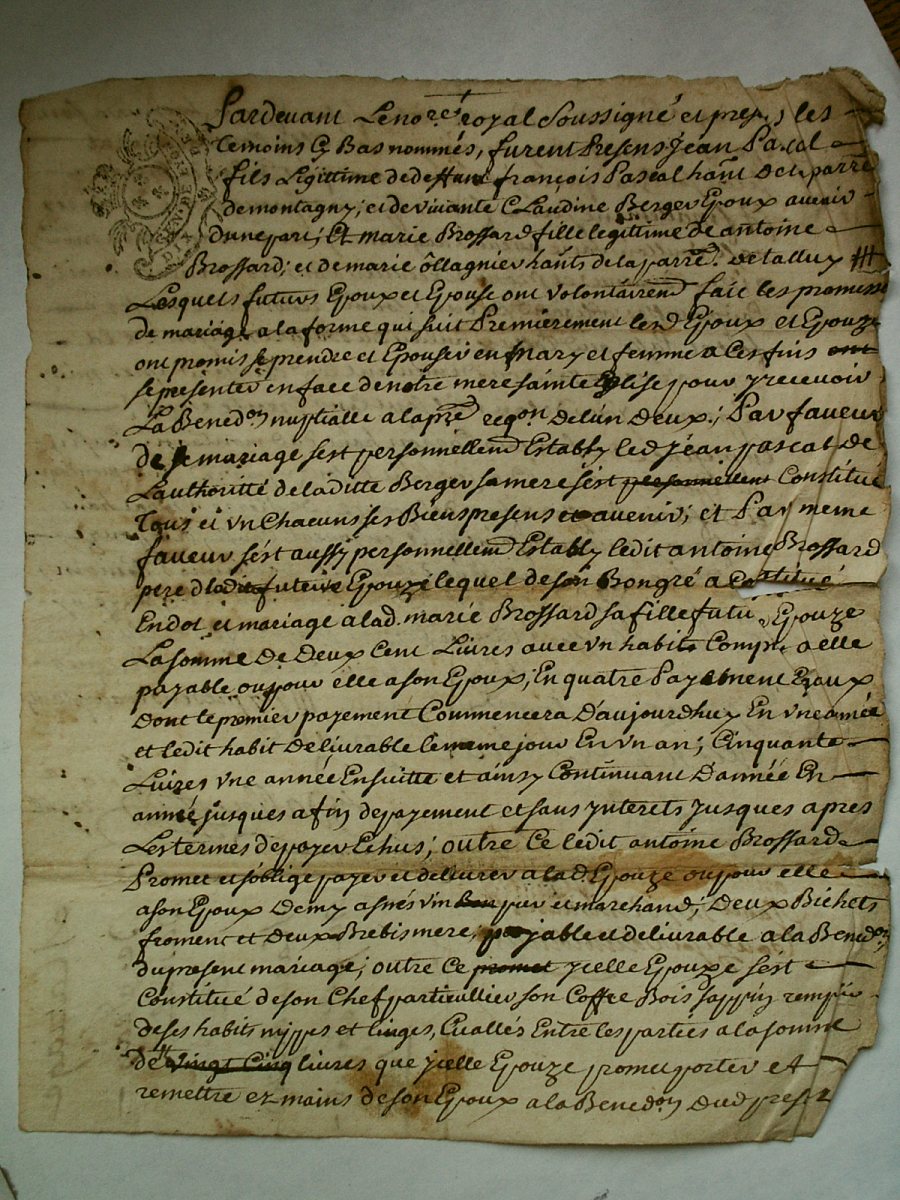 Pardevant Le nore royal Soussigné et les
temoins Cy Bas nommés, furent Presens Jean Pascal
fils Legittime de deffunt françois Pascal hant De la parre
de montagny; et de vivante Claudine Berger Epoux avenir
d'une part; Et marie Brossard fille legitime de antoine
Brossard; et de marie ôllagnier hants de la parre. de talluy
Lesquels futurs Epoux et Epouse ont volontairemt fait les promesse
de mariage a la forme qui suit Premierement lesd Epoux et Epouze
ont promis se prendre et Epouser en mary et femme a Ces fins ont
se presenter en face de notre mere sainte Eglise pour y recevoir
La Benedon nuptialle a la pre reqon De lun Deux; Par faveur
De ce mariage sest personnellemt Estably led jean pascal de
Lauthorité de la ditte Berger sa mere sést personnellemt Constitué
Tous et vn Chacuns ses Biens presens et avenir; et Par meme
faveur sést aussy personnellemt Estably ledit antoine Brossard
pere de ladite future Epouze lequel de son Bongré a Constitué
En dot et mariage a lad. marie Brossard sa fille futu Epouze
La somme De Deux Cent Livres avec vn habits a elle
payable ou pour elle a son Epoux, En quatre Payement Egaux
Dont le premier payement Commencera D'aujourdhuy En vne année
et ledit habit delivrable le meme jour En vn an; Cinquante
Livres vne année Ensuitte et ainsy Continuant D'année En
année jusques a fin de payement et sans Interets Jusques apres
Les termes de payer Echus; outre Ce ledit antoine Brossard
Promet et soblige payer et dellivrer a lad Epouze ou pour elle
a son Epoux Demy asnés vin Bon pur et marchand; Deux Bichets
froment et Deux Brebis mere; payable et delivrable a la Benedon
du present mariage; outre Ce promet ycelle Epouze sést
Constitué de son Chef particullier son Coffre Bois sappin remplis
de ses habits nippes et linges, Evallés Entre les parties a la somme
de Vingt Cinq livres que ycelle Epouze promet porter et
remettre ez mains de son Epoux a la Benedon dud